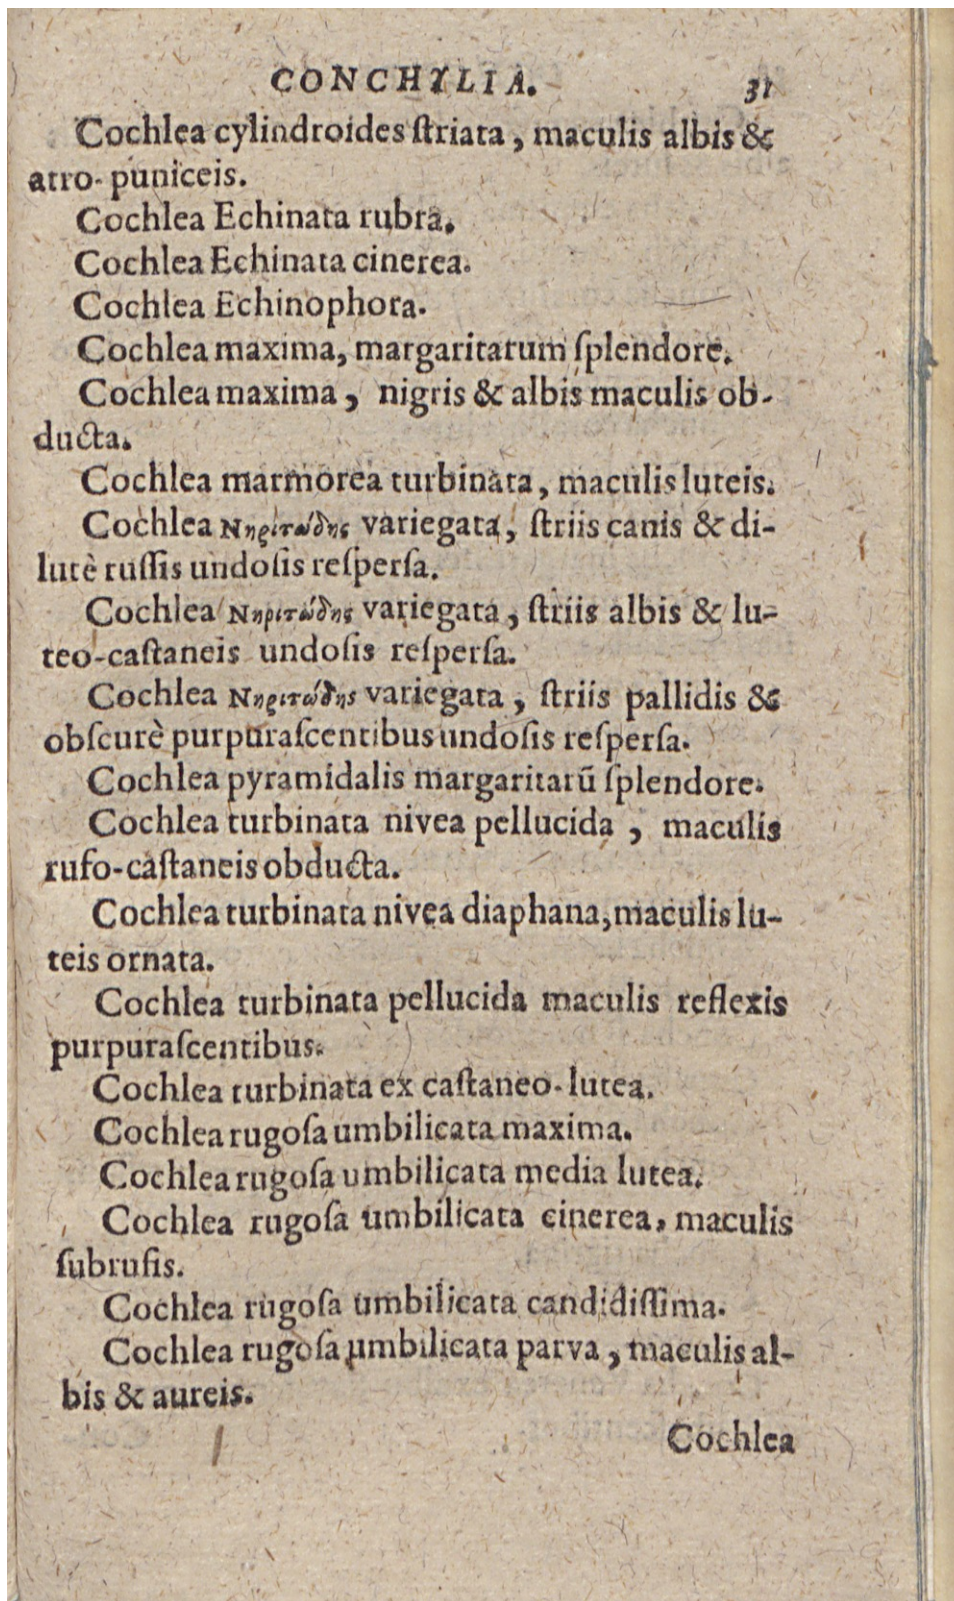 CONCHYLIA. 31
Cochlea cylindroides ſtriata, maculis albis &
atro-puniceis.
Cochlea Echinata rubra.
Cochlea Echinata cinerea.
Cochlea Echinophora.
Cochlea maxima, margaritarum ſplendore.
Cochlea maxima, nigris & albis maculis ob-
ducta.
Cochlea marmorea turbinata, maculis luteis.
Cochlea Νηριτώδης variegata, ſtriis canis & di-
lutè ruſſis undoſis reſperſa.
Cochlea Νηριτώδης variegata, ſtriis albis & lu-
teo-caſtaneis undoſis reſperſa.
Cochlea Νηριτώδης variegata, ſtriis pallidis &
obſcurè purpuraſcentibus undoſis reſperſa.
Cochlea pyramidalis margaritarũ ſplendore.
Cochlea turbinata nivea pellucida, maculis
rufo-caſtaneis obducta.
Cochlea turbinata nivea diaphana, maculis lu-
teis ornata.
Cochlea turbinata pellucida maculis reflexis
purpuraſcentibus.
Cochlea turbinata ex caſtaneo-lutea.
Cochlea rugoſa umbilicata maxima.
Cochlea rugoſa umbilicata media lutea.
Cochlea rugoſa umbilicata cinerea, maculis
ſubrufis.
Cochlea rugoſa umbilicata candidiſſima.
Cochlea rugoſa umbilicata parva, maculis al-
bis & aureis.
Cochlea